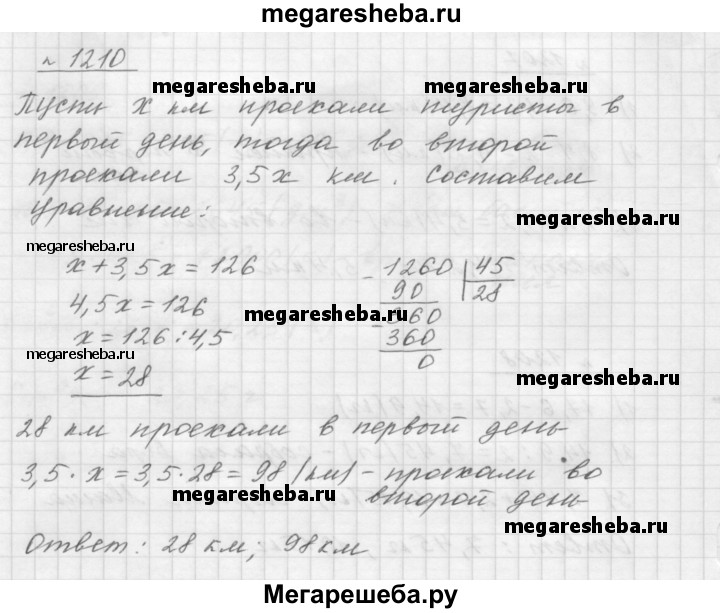 megaresheba.ru
№ 1210
megaresheba.ru megaresheba.ru
Пусть x км проехали туристы в
первый день, тогда во второй
проехали 3,5x км. Составим
уравнение:
megaresheba.ru
megaresheba.ru
x + 3,5x = 126
4,5x = 126
x = 126 : 4,5
x = 28
- 1260 | 45
90 28
- 360
360
0
megaresheba.ru
megaresheba.ru
megaresheba.ru
28 км проехали в первый день
3,5 · x = 3,5 · 28 = 98 (км) - проехали во
второй день
megaresheba.ru
megaresheba.ru
Ответ: 28 км; 98 км
Мегарешеба.ру